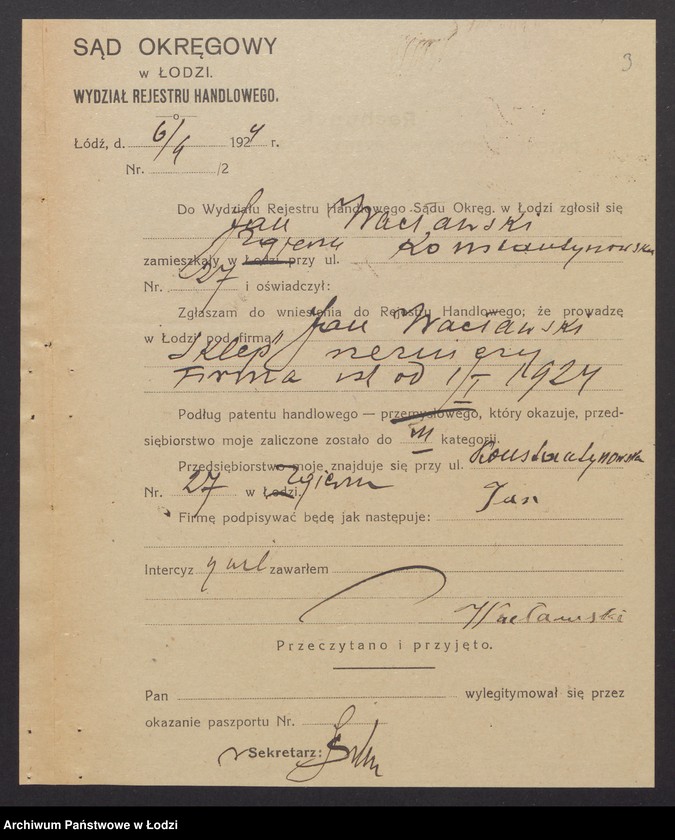 3
SĄD OKRĘGOWY
w ŁODZI.
WYDZIAŁ REJESTRU HANDLOWEGO.
Łódź, d. 6/4 1924 r.
Nr. /2
Do Wydziału Rejestru Handlowego Sądu Okręg. w Łodzi zgłosił się
Jan Wacławski
Zgierzu Konstantynowska
zamieszkały w Łodzi przy ul.
Nr. 27 i oświadczył:
Zgłaszam do wniesienia do Rejestru Handlowego, że prowadzę
w Łodzi pod firmą „Jan Wacławski
Sklep"
Firma ist od 1/I 1924
Podług patentu handlowego — przemysłowego, który okazuje, przed-
siębiorstwo moje zaliczone zostało do III kategorji.
Przedsiębiorstwo moje znajduje się przy ul. Konstantynowska
Nr. 27 w Łodzi. Zgierzu
Firmę podpisywać będę jak następuje: Jan
Intercyz nie zawarłem
Wacławski
Przeczytano i przyjęto.
Pan wylegitymował się przez
okazanie paszportu Nr.
Sekretarz:
Archiwum Państwowe w Łodzi